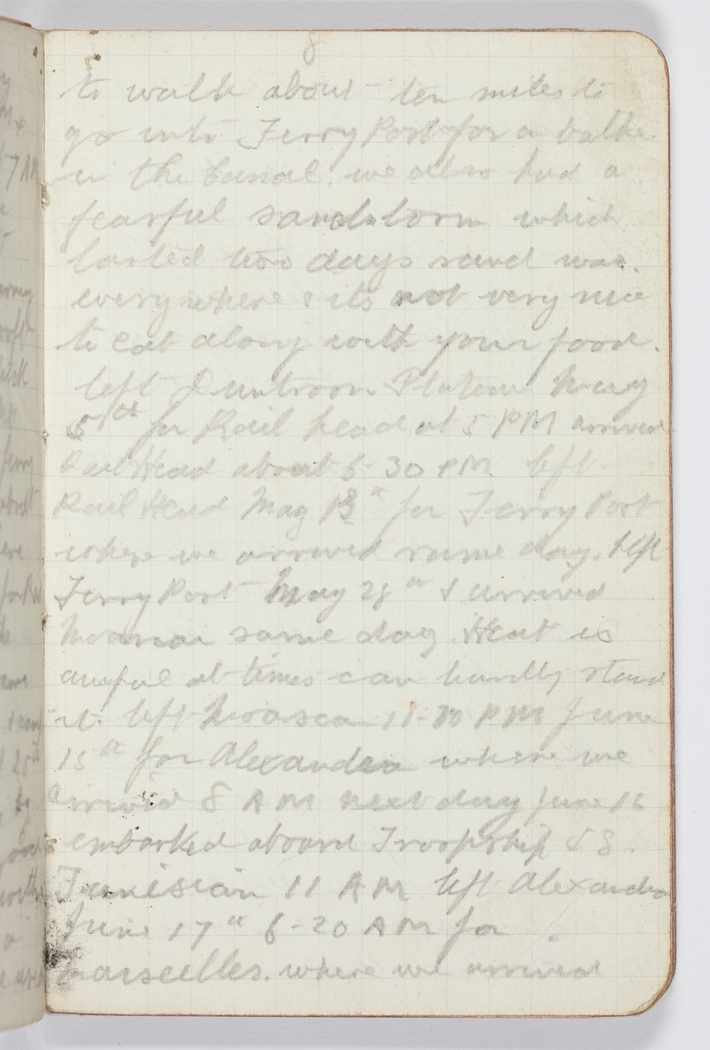 8
to walk about ten miles to
go into Ferry Post for a bathe
in the Canal. we also had a
fearful sandstorm which
lasted two days sand was
everywhere & its not very nice
to eat along with your food.
left Duntroon Plateau May
5th for Rail head at 5 PM arrived
Rail Head about 6-30 PM left
Rail Head May 13th for Ferry Post
where we arrived same day. left
Ferry Post May 28th & arrived
Moascar same day. Heat is
awful at times can hardly stand
it. left Moascar 11-30 PM June
15th for Alexandria where we
arrived 8 AM next day June 16
embarked aboard Troopship SS.
Tunisian 11 AM left Alexandria
June 17th 6-20 AM for
Marseelles. where we arrived